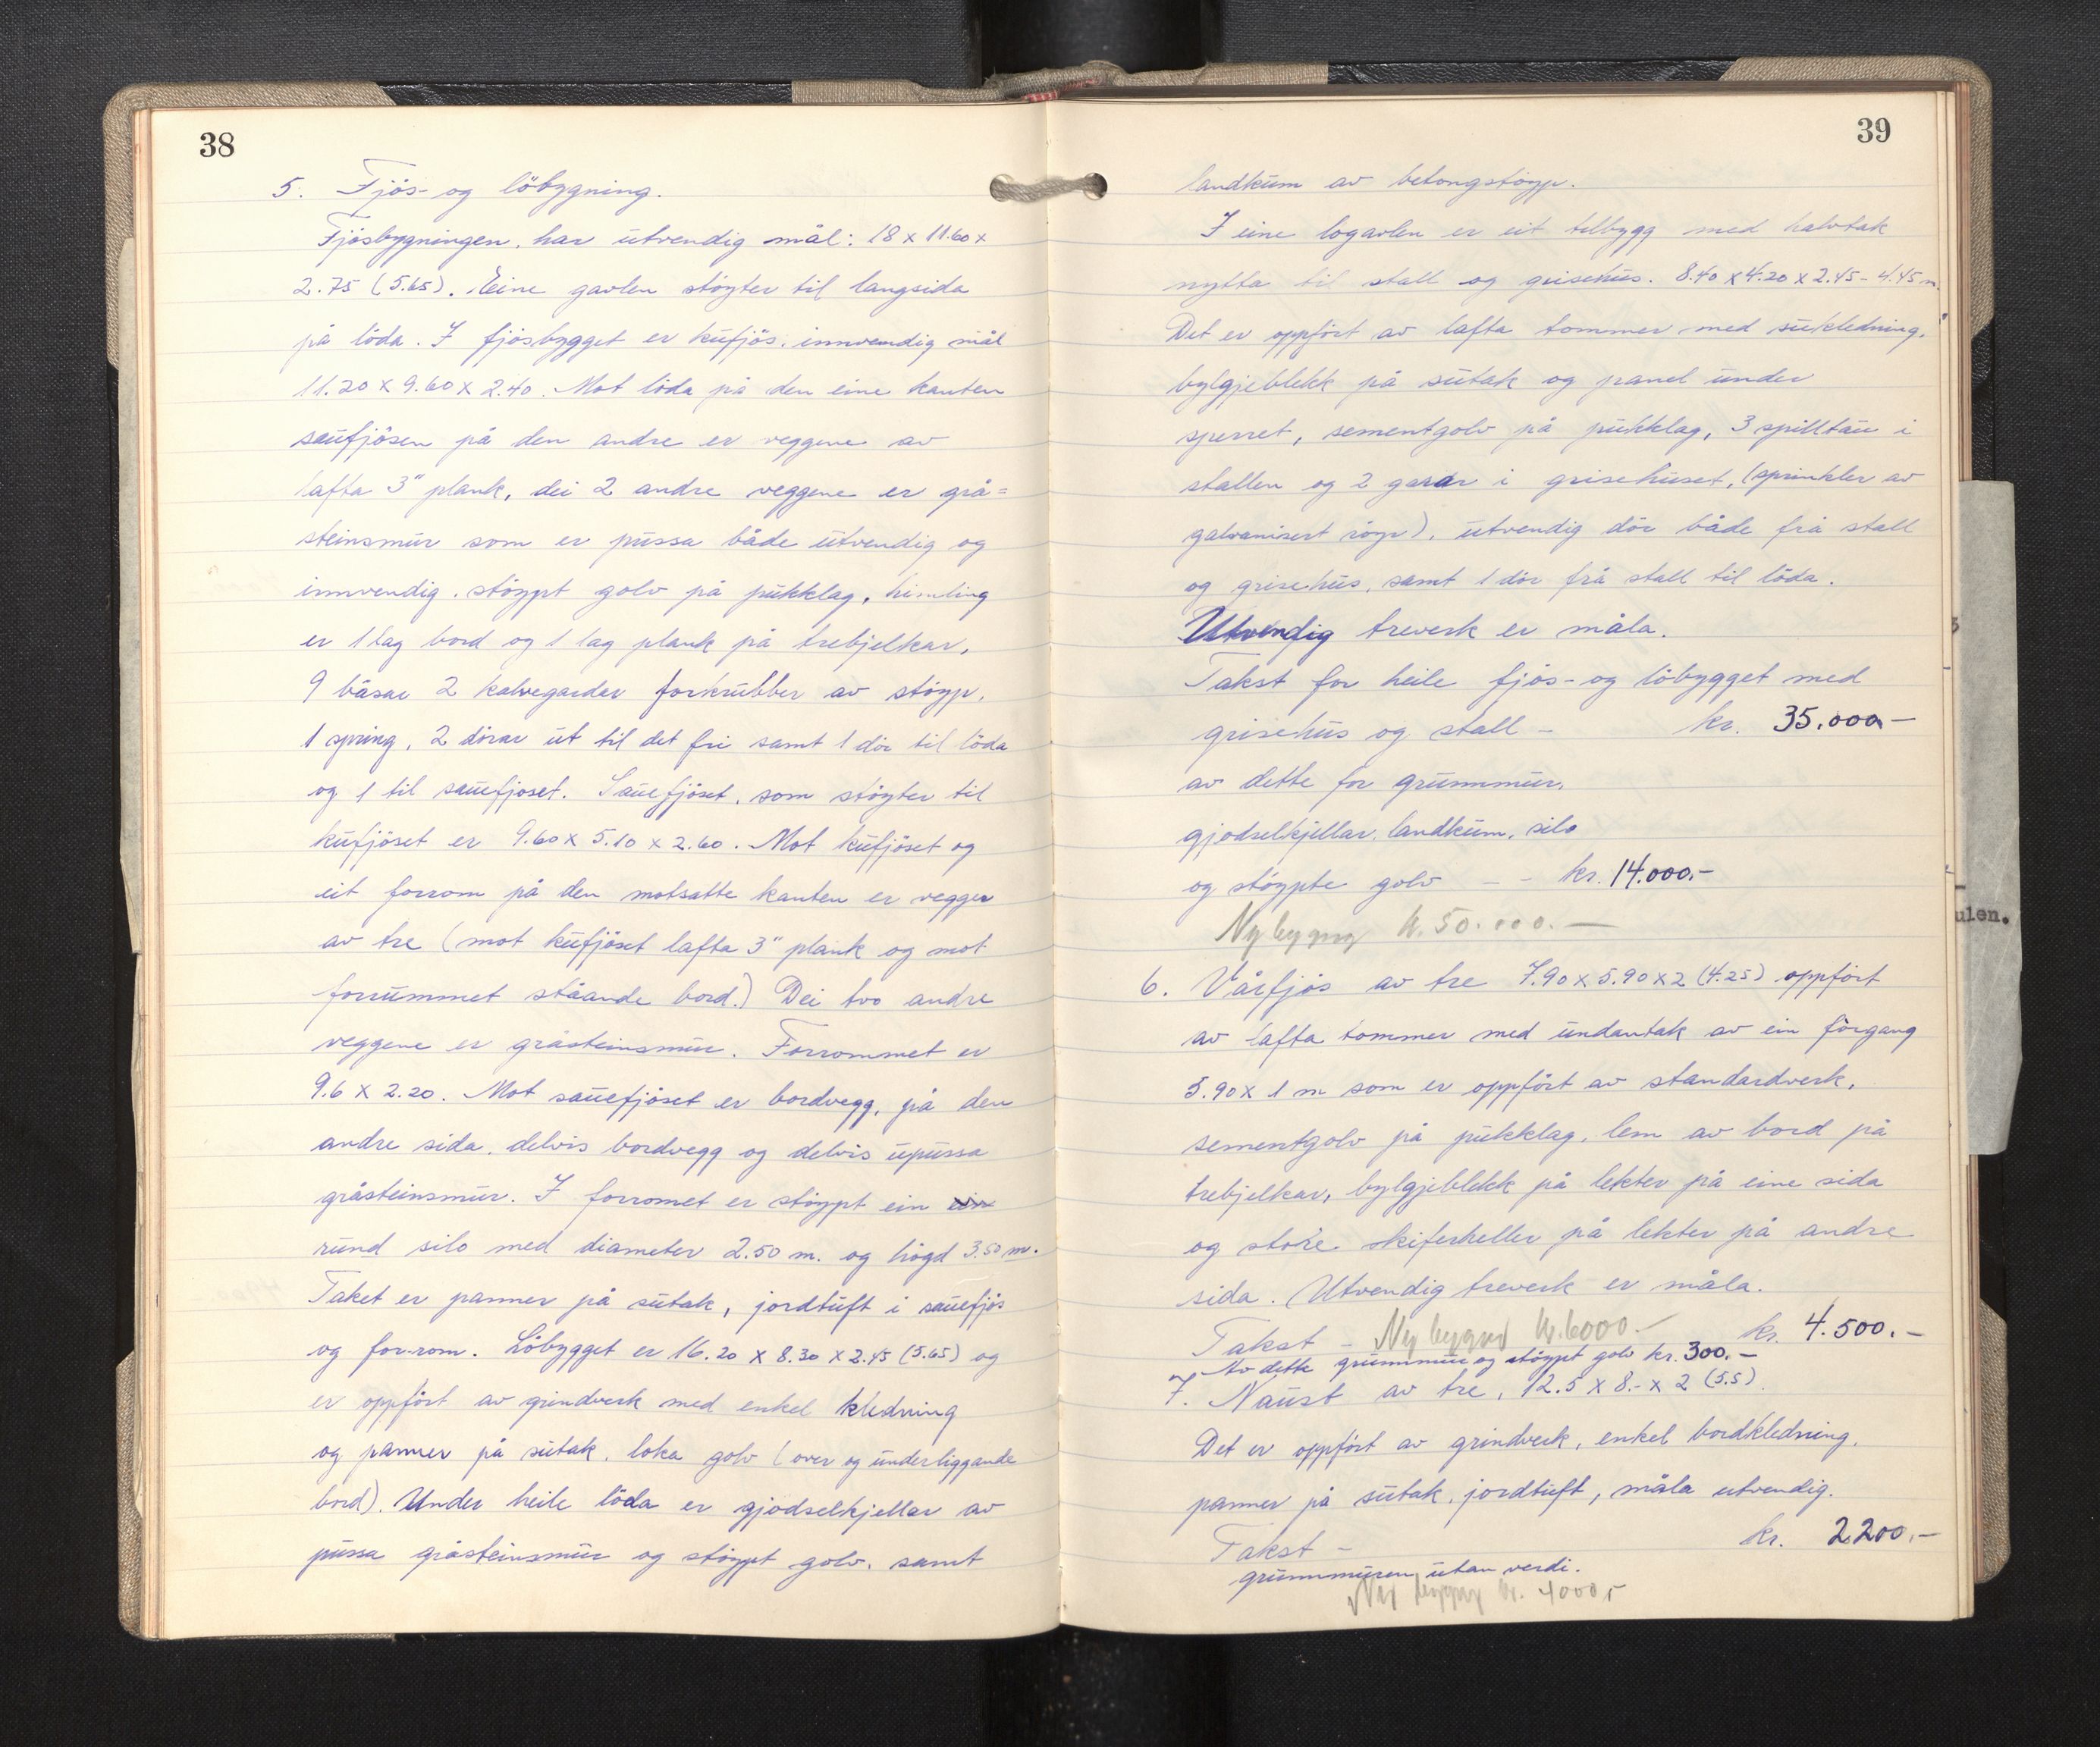 38
5. Fjös- og löbygning.
Fjösbygningen, har utvendig mål: 18 x 11.60 x
2.75 (5.65). Eine gavlen støyter til langsida
på löda. I fjösbygget er kufjös, innvendig mål
11.20 x 9.60 x 2.40. Mot löda på den eine kanten
saufjösen på den andre er veggene av
lafta 3" plank, dei 2 andre veggene er grå=
steinsmur som er pussa både utvendig og
innvendig, støypt golv på pukklag, himling
er 1 lag bord og 1 lag plank på trebjelkar,
9 båsar 2 kalvegarder forkrubber av støyp,
1 spring, 2 dörar ut til det fri samt 1 dör til löda
og 1 til sauefjöset. Sauefjöset, som støyter til
kufjöset er 9.60 x 5.10 x 2.60. Mot kufjöset og
eit forrom på den motsatte kanten er vegger
av tre (mot kufjöset lafta 3" plank og mot
forrummet ståande bord.) Dei two andre
veggene er gråsteinsmur. Forrommet er
9.6 x 2.20. Mot sauefjöset er bordvegg, på den
andre sida, delvis bordvegg og delvis upussa
gråsteinsmur. I forromet er støypt ein ein
rund silo med diameter 2.50 m. og högd 3.50 m.
Taket er panner på sutak, jordtuft i sauefjös
og for-rom. Löbygget er 16.20 x 8.30 x 2.45 (5.65) og
er oppfört av grindverk med enkel kledning
og panner på sutak, loka golv (over og underliggande
bord). Under heile löda er gjødselkjellar av
pussa gråsteinsmur og støypt golv, samt
39
landkum av betongstøyp.
I eine logavlen er eit tilbygg med halvtak
nytta til stall og grisehus. 8.40 x 4.20 x 2.45 - 4.45 m.
Det er oppfört av lafta tommer med sukledning,
bylgjeblekk på sutak og panel under
sperret, sementgolv på pukklag, 3 spilltau i
stallen og 2 garar i grisehuset, (sprinkler av
galvanisert röyr), utvendig dör både frå stall
og grisehus, samt 1 dör frå stall til löda.
Utvendig treverk er måla.
Takst for heile fjös- og löbygget med
grisehus og stall - kr. 35.000 -
av dette for grunnmur,
gjødselkjellar, landkum, silo
og støypte golv - - kr. 14.000.-
Ny bygng kr. 50.000.-
6. Vårfjös av tre 7.90 x 5.90 x 2 (4.25) oppfört
av lafta tommer med undantak av ein forgang
5.90 x 1 m som er oppfört av standardverk,
sementgolv på pukklag, lem av bord på
trebjelkar, bylgjeblekk på lekter på eine sida
og store skiferheller på lekter på andre
sida. Utvendig treverk er måla.
Takst - Ny bygnd kr. 6000.- kr. 4.500.-
Av dette grunnmur og støypt golv kr. 300.-
7. Naust av tre, 12.5 x 8.- x 2 (5.5).
Det er oppfört av grindverk, enkel bordkledning,
panner på sutak, jordtuft, måla utvendig.
Takst - kr. 2200.-
grunnmuren utan verdi.
Ny bygng kr. 4000,-
ulen.